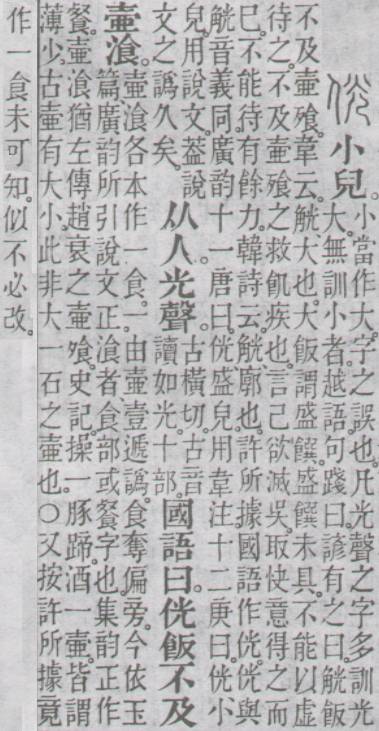 侊 小皃。
小當作大。字之誤也。凡光聲之字多訓光
大。無訓小者。越語句踐曰。諺有之曰。觥飯
不及壺飱。韋云。觥大也。大飯謂盛饌。盛饌未具。不能以虛
待之。不及壺飱之救飢疾也。言己欲滅吳。取快意得之而
巳。不能待有餘力。韓詩云。觥廓也。許所據國語作侊。侊與
觥音義同。廣韵十一唐曰。侊盛皃。用韋注。十二庚曰。侊小
皃。用說文。葢說
文之譌久矣。
从人光聲。
古橫切。古音
讀如光。十部。
國語曰。侊飯不及
壺湌。
壺湌各本作一食。一由壺壹遞譌。食奪偏旁。今依玉
篇廣韵所引說文正。湌者食部或餐字也。集韵正作
餐。壺湌猶左傳趙衰之壺飱。史記。操一豚蹄酒一壺。皆謂
薄少。古壺有大小。此非大一石之壺也。○又按許所據竟
作一食未可知。似不必改。